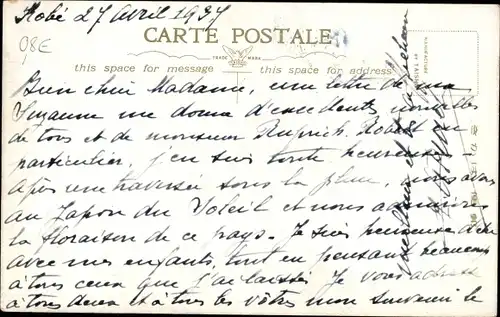 Kobé 27 Avril 1937
08€
CARTE POSTALE
TRADE MARK
this space for message
this space for address
Bien chère Madame, une lettre de ma
Suzanne me donne d'excellentes nouvelles
de tous et de monsieur Ruprich Robert en
particulier, j'en suis toute heureuse.
Après une traversée sous la pluie, nous avons
au Japon du Soleil et nous admirons
la floraison de ce pays. Je suis heureuse d'être
avec mes enfants, tout en pensant beaucoup
à tous ceux que j'ai laissés. Je vous adresse
à tous deux et à tous les vôtres mon souvenir le